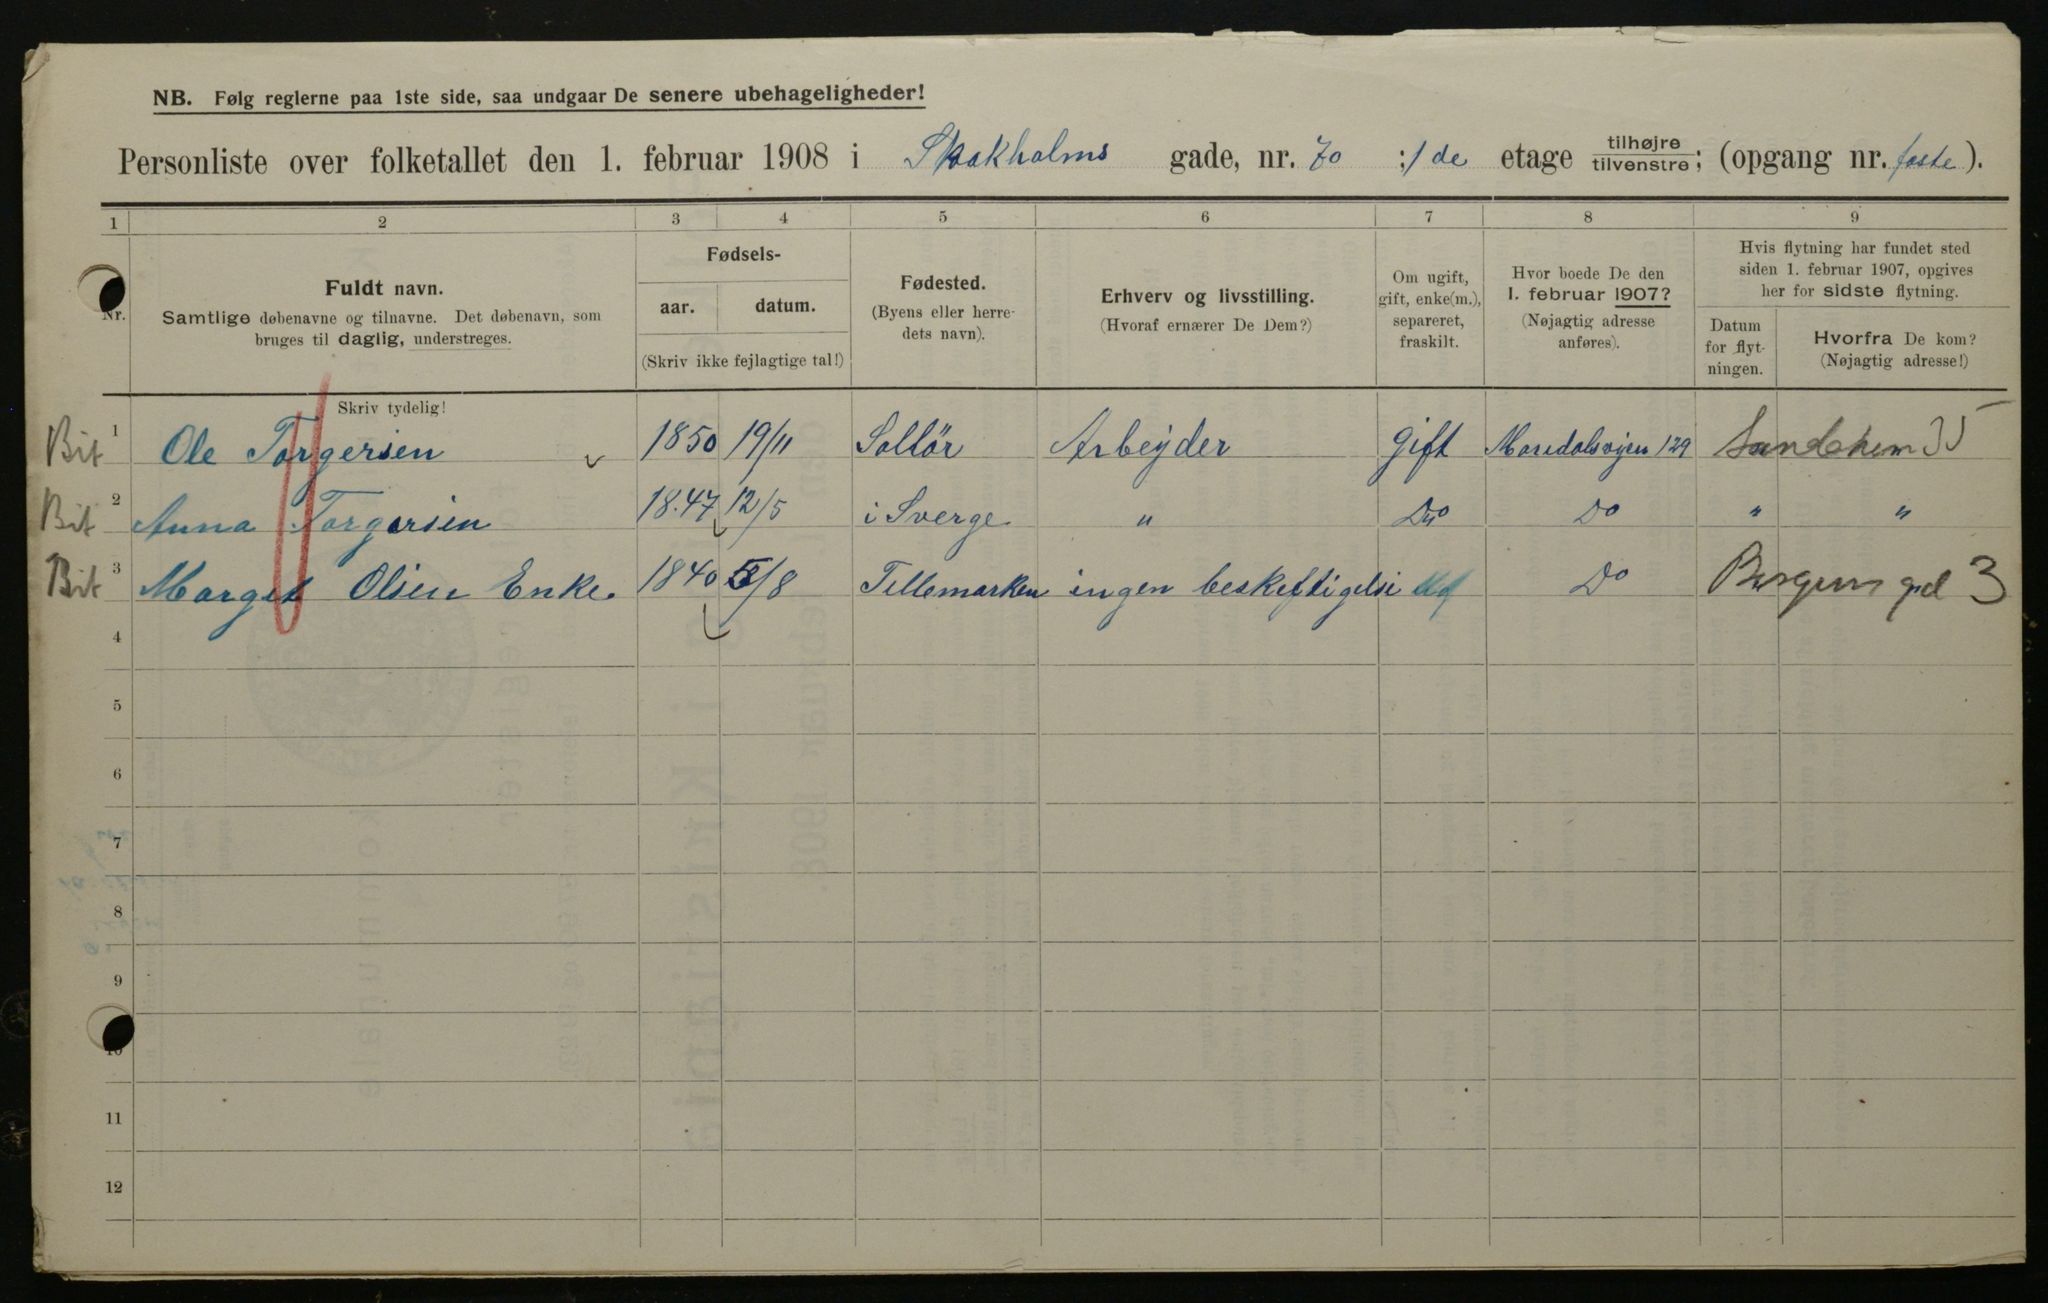 NB. Følg reglerne paa 1ste side, saa undgaar De senere ubehageligheder!
Personliste over folketallet den 1. februar 1908 i Stokholms gade, nr. 70 : 1 de etage tilhøjre tilvenstre; (opgang nr. ).
1 2 3 4 5 6 7 8 9
Nr.
Fuldt navn.
Samtlige døbenavne og tilnavne. Det døbenavn, som
bruges til daglig, understreges.
Skriv tydelig!
Fødsels-
aar. datum.
(Skriv ikke fejlagtige tal!)
Fødested.
(Byens eller herre-
dets navn).
Erhverv og livsstilling.
(Hvoraf ernærer De Dem?)
Om ugift,
gift, enke(m.),
separeret,
fraskilt.
Hvor boede De den
1. februar 1907?
(Nøjagtig adresse
anføres).
Hvis flytning har fundet sted
siden 1. februar 1907, opgives
her for sidste flytning.
Datum
for flyt-
ningen.
Hvorfra De kom?
(Nøjagtig adresse!)
Bit 1 Ole Torgersen 1850 19/11 Sollør Arbeyder gift Maridalsvejen 129
Bit 2 Anna Torgersen 18.47 12/5 i Sverge " Do Do " "
Bit 3 Marget Olsen Enke. 1840 5/8 Tellemarken ingen beskeftigelse Do Bergens gd 3
4
5
6
7
8
9
10
11
12